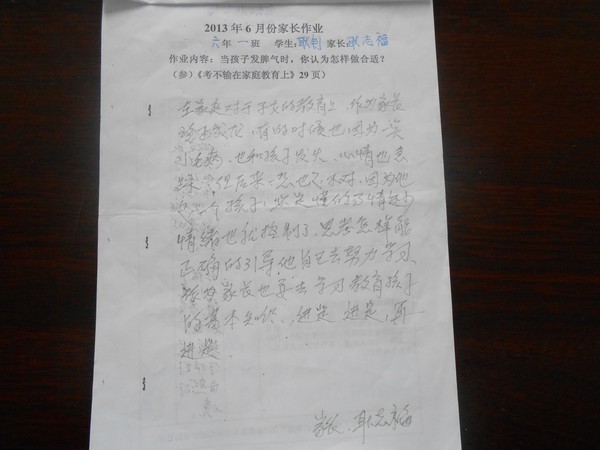 2013 年 6 月份家长作业
六年 一班 学生:耿钊 家长:耿志福
作业内容：当孩子发脾气时，你认为怎样做合适？
（参）《考不输在家庭教育上》29 页）
在家庭对于子女的教育上，作为家长
有的时候也因为一点
也和孩子发火，心情也急
躁，但后来一想也不对，因为他
是一个孩子，懂的事情少
情绪也就控制了，思考怎样能
正确的引导，他自己去努力学习，
家长也要去学习教育孩子
的基本知识，进步 进步，再
进步
家长、耿志福